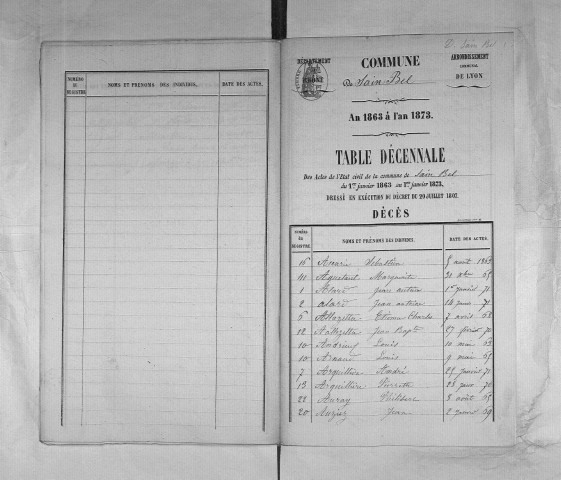 NUMÉRO DU REGISTRE. NOMS ET PRÉNOMS DES INDIVIDUS. DATE DES ACTES.
D. Sain Bel
DÉPARTEMENT RHONE
COMMUNE
De Sain-Bel
ARRONDISSEMENT COMMUNAL DE LYON
An 1863 à l'an 1873.
TABLE DÉCENNALE
Des Actes de l'Etat civil de la commune de Sain Bel
du 1er janvier 1863 au 1er janvier 1873,
DRESSÉ EN EXÉCUTION DU DÉCRET DU 20 JUILLET 1807.
DÉCÈS
NUMÉRO DU REGISTRE. NOMS ET PRÉNOMS DES INDIVIDUS. DATE DES ACTES.
16 Sébastien 5 aout 1863
41 Marguerite 31 xbre 65
1 Alard Jean antoine 1er janvier 71
2 alard Jean antoine 14 janv 71
5 Etienne Charles 7 avril 68
12 Jean Bapte 17 février 70
10 Andrieux Louis 10 mai 63
10 Arnaud Louis 9 mai 65
7 André 25 janvier 71
13 Arquillière Pierrette 26 janv 70
22 Auray Philibert 3 août 65
20 Jean 2 janvier 69